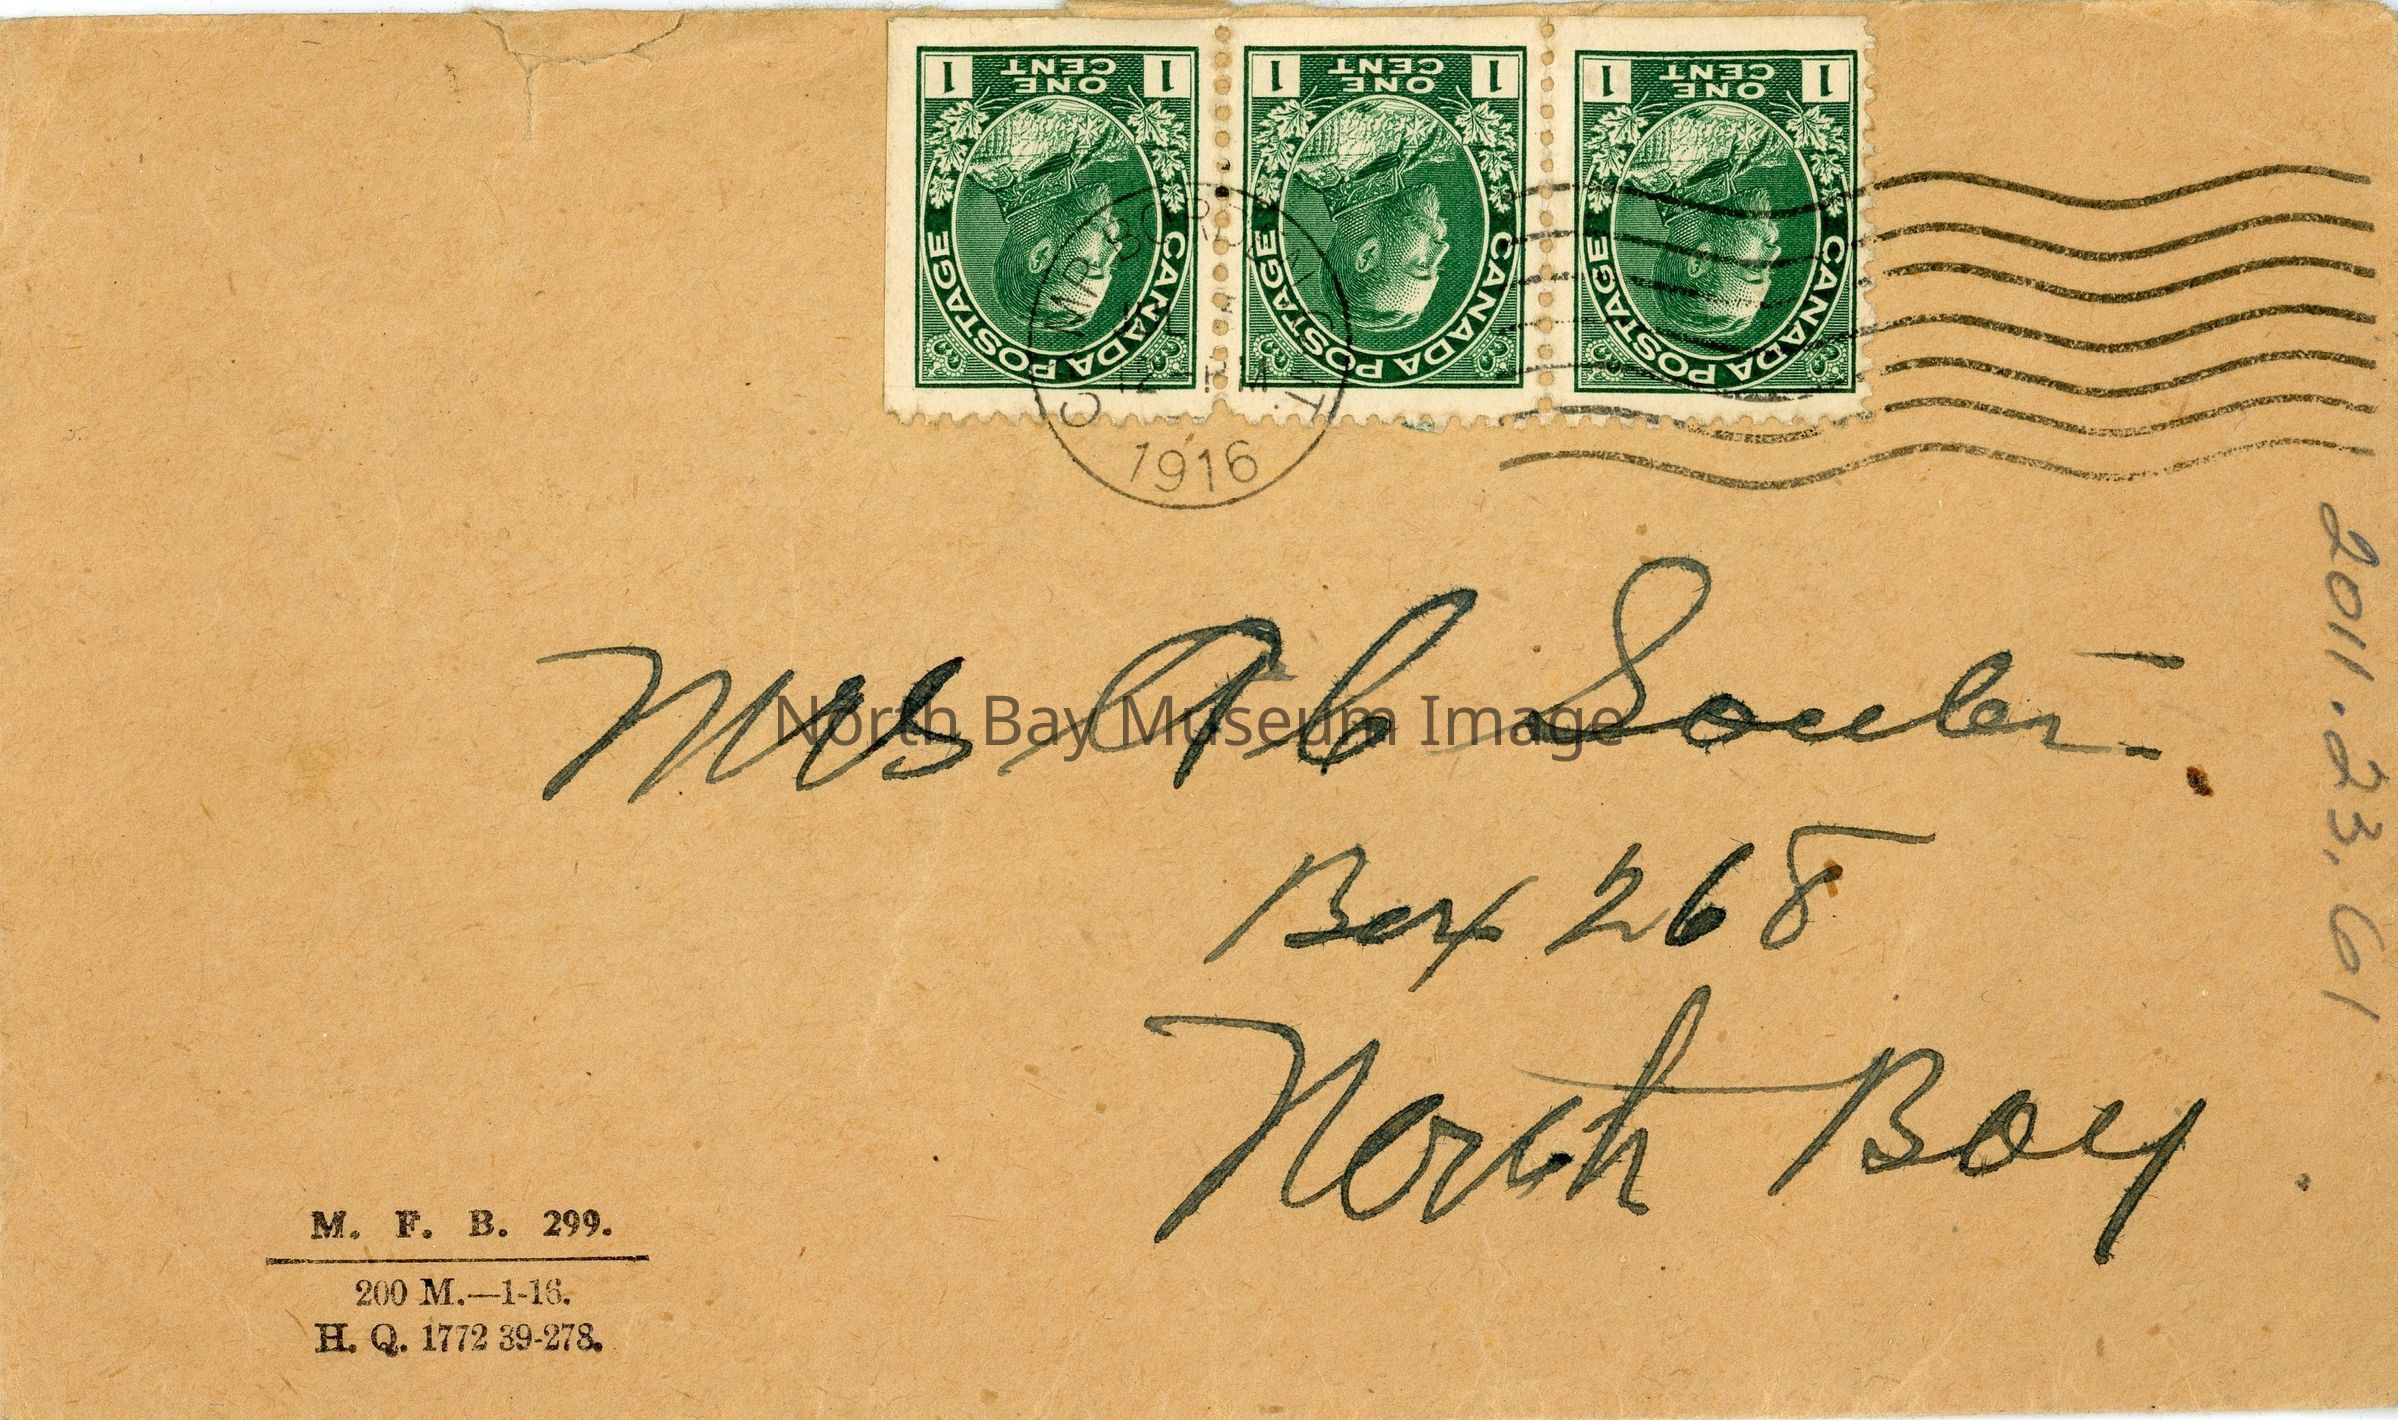 1 ONE CENT 1
CANADA POSTAGE
1 ONE CENT 1
CANADA POSTAGE
1 ONE CENT 1
CANADA POSTAGE
1916
2011.23.61
Mrs A C Souter
North Bay Museum Image
Box 268
North Bay
M. F. B. 299.
200 M.—1-16.
H. Q. 1772 39-278.